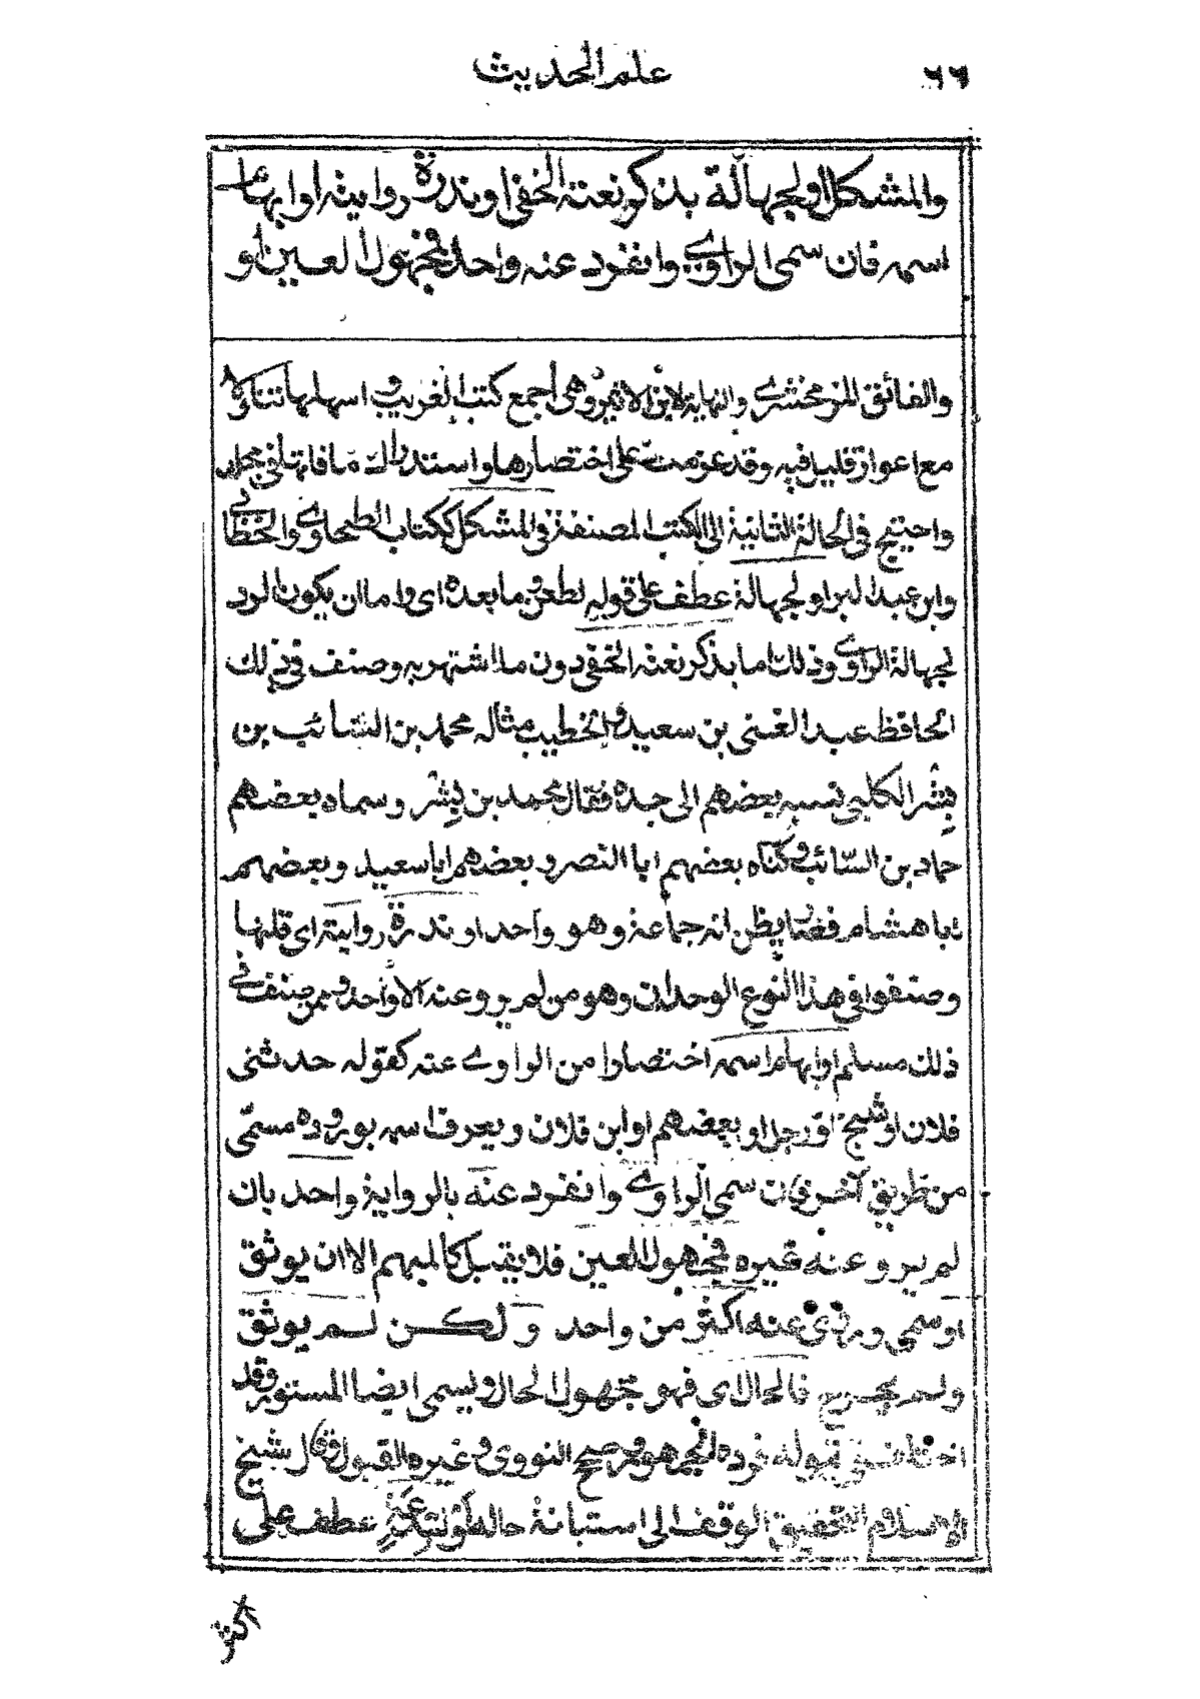 ٦٦
علم الحديث
والمشكل او لجهالة بذكر نعته الخفي او ندرة روايته او ابهام
اسمه فان سمى الراوي وانفرد عنه واحد فمجهول العين او
والفائق للزمخشري والنهاية لابن الاثير وهي اجمع كتب الغريب واسهلها تناولا
مع اعواز قليل فيه وقد عزمت على اختصارها واستدراك ما فاتها في مجلد
واحتيج في الحالة الثانية الى الكتب المصنفة في المشكل ككتاب الطحاوي والخطابي
وابن عبد البر او لجهالة عطف على قوله لطعن وما بعده اي واما ان يكون الرد
لجهالة الراوي وذلك اما بذكر نعته الخفي دون ما اشتهر به وصنف في ذلك
الحافظ عبد الغني بن سعيد والخطيب مثاله محمد بن السائب بن
بشر الكلبي نسبه بعضهم الى جده فقال محمد بن بشر وسماه بعضهم
حماد بن السائب وكناه بعضهم ابا النصر وبعضهم ابا سعيد وبعضهم
ابا هشام فصار يظن انه جماعة وهو واحد او ندرة روايته اي قلتها
وصنفوا في هذا النوع الوحدان وهو من لم يرو عنه الا واحد وممن صنف في
ذلك مسلم او ابهام اسمه اختصارا من الراوي عنه كقوله حدثني
فلان او شيخ او رجل او بعضهم او ابن فلان ويعرف اسمه بوروده مسمى
من طريق آخر فان سمى الراوي وانفرد عنه بالرواية واحد بان
لم يرو عنه غيره فمجهول العين فلا يقبل كالمبهم الا ان يوثق
او سمى وروى عنه اكثر من واحد ولكن لم يوثق
ولم يجرح فالحال اي فهو مجهول الحال ويسمى ايضا المستور وقد
اختلف في قبوله فرده الجمهور وصحح النووي وغيره القبول وقال شيخ
الاسلام التحقيق الوقف الى استبانة حاله عطف على
اكثر